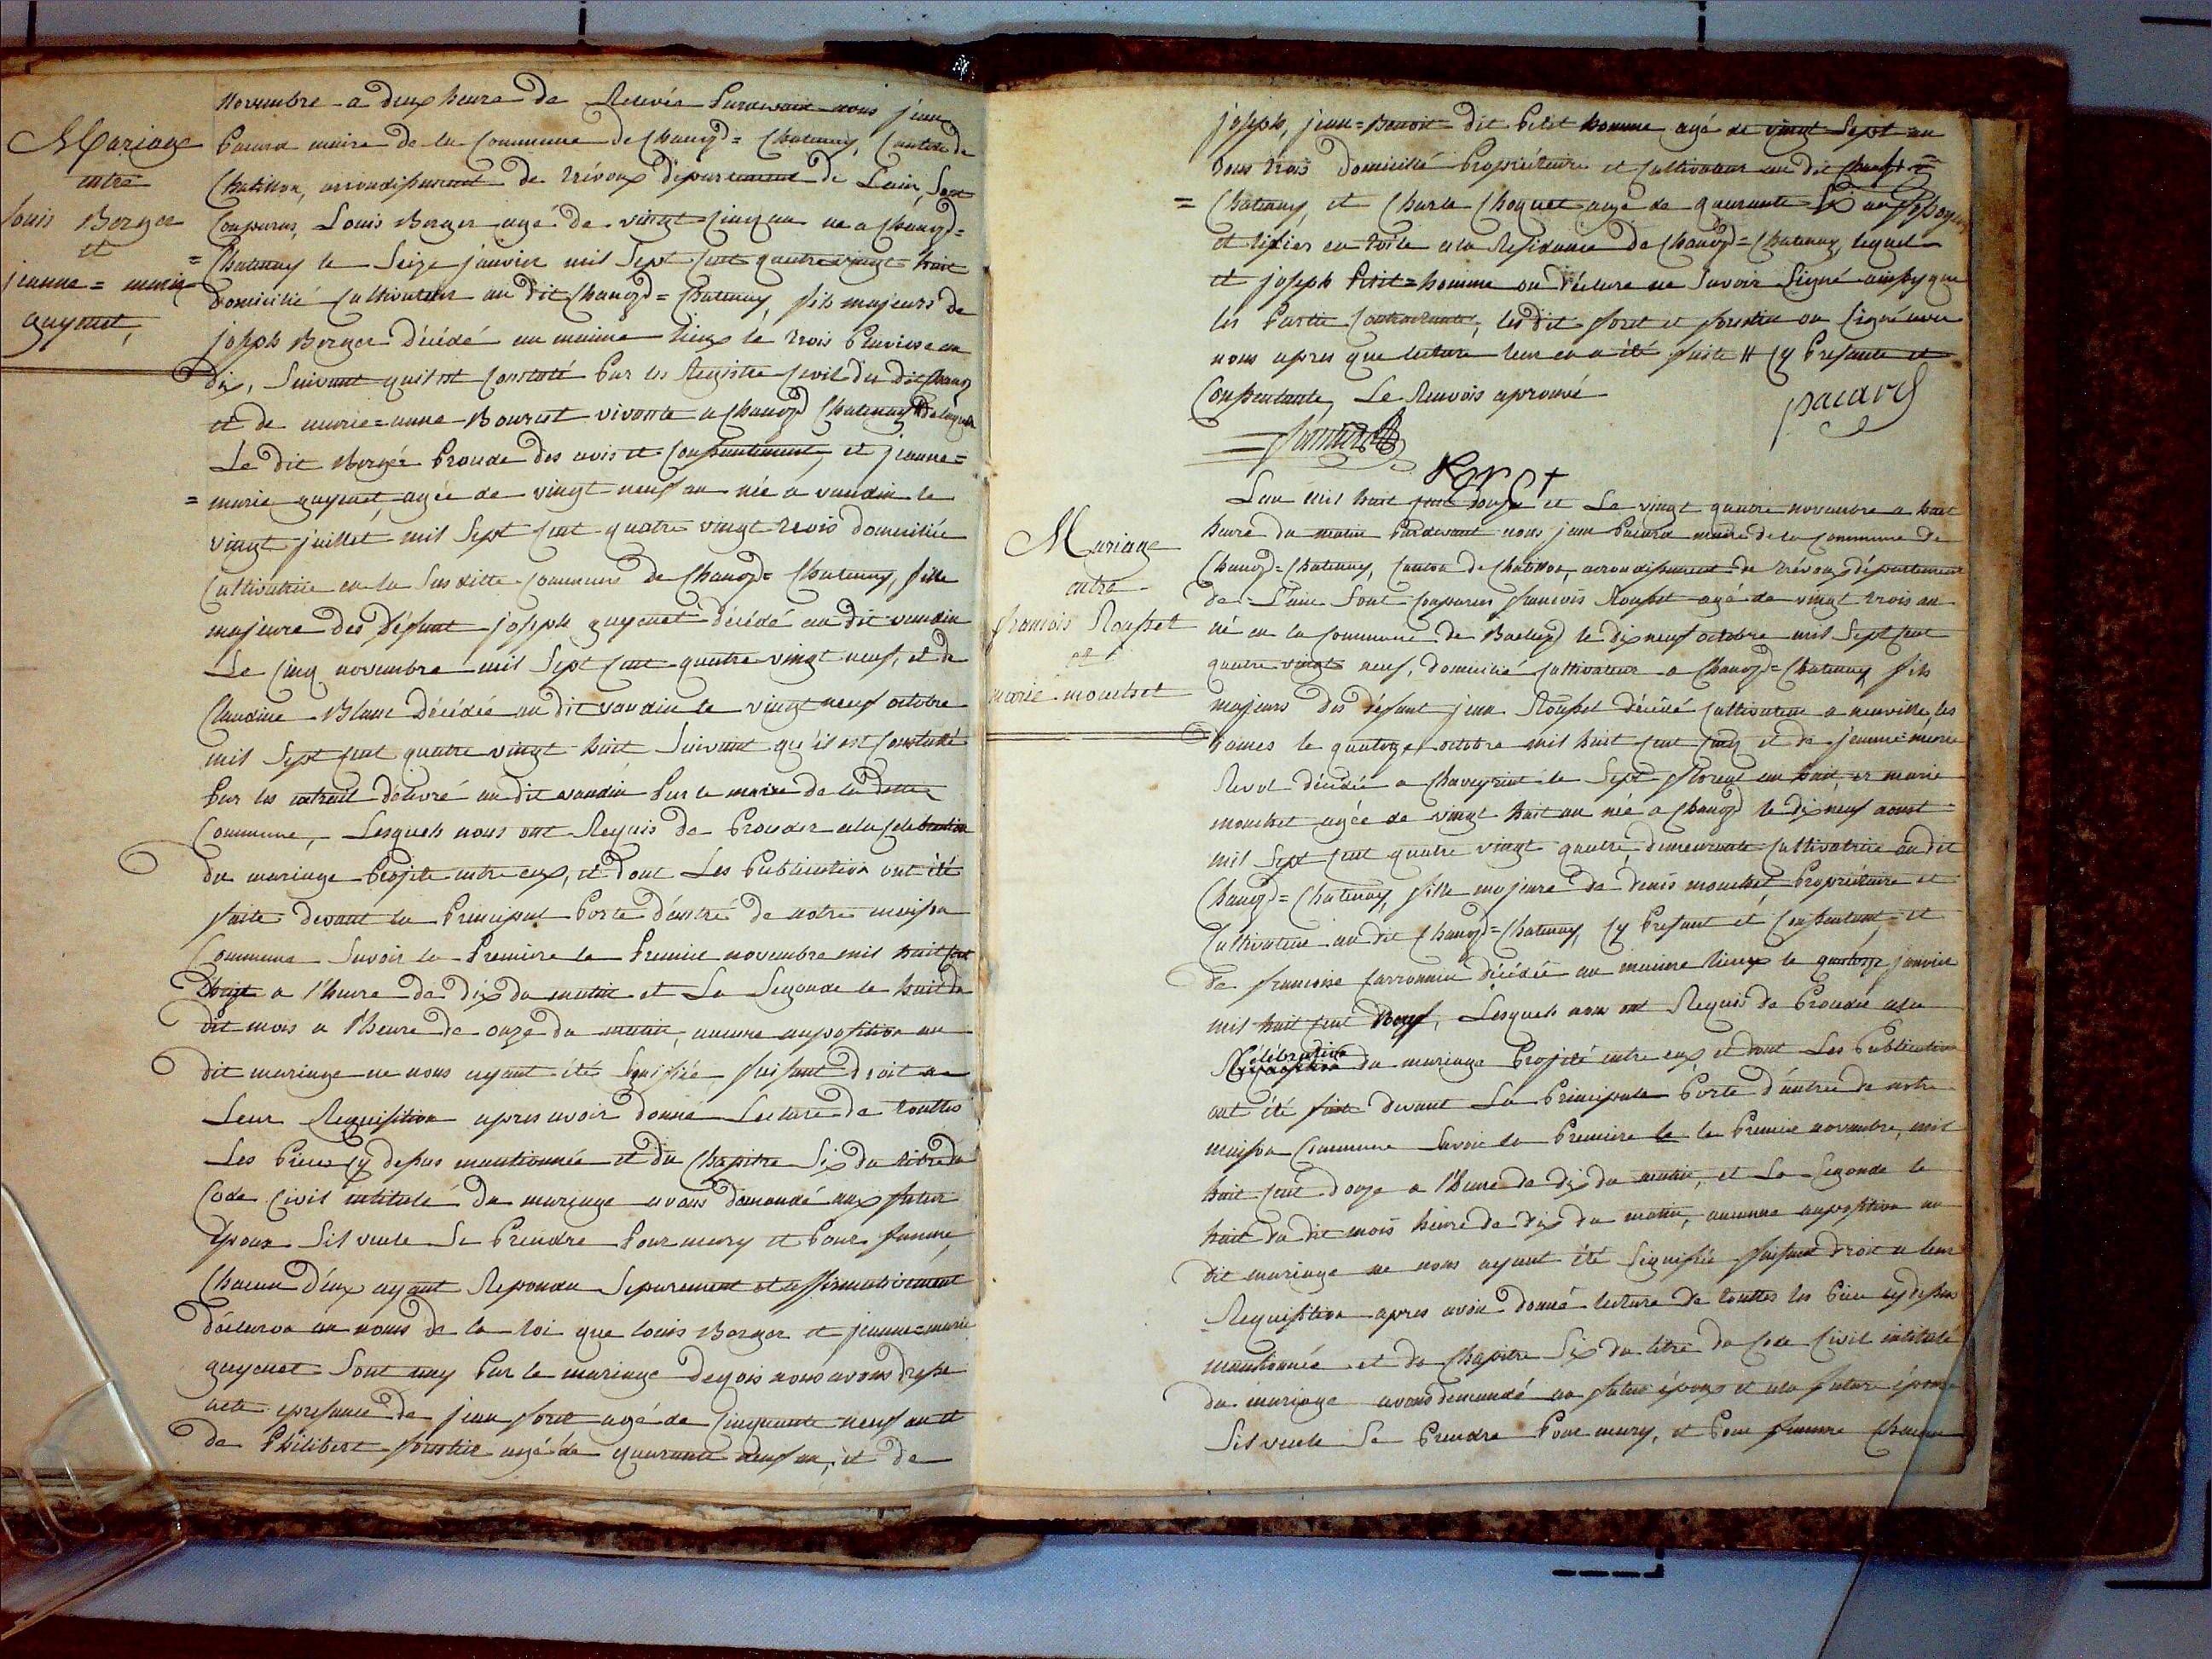 Mariage
entre
louis Berger
et
jeanne = marie
guyenet,
novembre a deux heure de Relevée Pardevant nous jean
Pacard maire de la Commune de Chanoz = Chatenay, Canton de
Chatillon, arrondissement de trévoux département de L'ain, Sont
Comparus, Louis Berger agé de vingt cinq an né a Chanoz =
= Chatenay le Seize janvier mil Sept Cent quatre vingt huit
domicilié Cultivateur au dit Chanoz = Chatenay, fils majeurs de
joseph Berger décédé au meime lieux le trois Pluviose an
dix, Suivant quil est Constaté Par les Registre Civil du dit Chanoz
et de marie = anne Bourcet vivante a Chanoz Chatenay # de laquelle
Le dit Berger Procede des avis et Consentement, et jeanne =
= marie guyenet, agée de vingt neuf an née a vandin le
vingt juillet mil Sept Cent quatre vingt trois domiciliée
Cultivatrice en la Susditte Commune de Chanoz = Chatenay, fille
majeure des défunt joseph guyenet décédé au dit vandin
Le Cinq novembre mil Sept Cent quatre vingt neuf, et de
Claudine Blanc décédée au dit vandin le vingt neuf octobre
mil Sept Cent quatre vingt huit Suivant qu'il est Constaté
Par les extrait délivré au dit vandin Par le maire de la ditte
Commune, Lesquels nous ont Requis de Proceder a la Celebration
du mariage Projeté entre eux, et dont Les Publication ont été
faite devant la Principal Porte d'entré de notre maison
Commune Savoir la Premiere le Premier novembre mil huit Cent
douze a l'heure de dix du matin et La Segonde le huit du
dit mois a l'heure de onze du matin, aucune auposition au
dit mariage ne nous ayant été Signifiée faisant droit a
Leur Requisition apres avoir donné Lecture de touttes
Les Pieces Cy dessus mentionnée et du Chapitre Six du titre du
Code Civil intitulé du mariage avons demandé aux futur
Epoux Sil veule Se Prendre Pour mary et Pour femme,
Chacun d'eux ayant Repondu Separement et affirmativement
déclaron au noms de la loi que louis Berger et jeanne = marie
guyenet Sont uny Par le mariage dequois nous avons dressé
acte epresance de jean foret agé de Cinquante neuf an et
de Philibert agé de quarante neuf an, et de
joseph, jean = Benoit dit Petit homme agé de vingt Sept an
tous trois domicilié Propriétaire et Cultivateur au dit Chanoz =
= Chatenay, et Charle Choquet agé de quarante Six an
et tixier en toile a la Residance de Chanoz = Chatenay, lequel
et joseph Petit = homme on déclare ne Savoir Signé ainsy que
les Partie Contractante, les dit foret et on Signé avec
nous apres que lecture leur en a été faite # Cy Presante et
Consentante Le Renvois aprouvé
pacard
foret
Mariage
entre
francois Rousset
et
marie mouchet
Lan mil huit cent douze et Le vingt quatre novembre a huit
heure du matin Pardevant nous jean Pacard maire de la Commune de
Chanoz = Chatenay, Canton de Chatillon, arrondissement de trévoux département
de L'ain Sont Comparus francois Rousset agé de vingt trois an
né en la Commune de le dix neuf octobre mil Sept Cent
quatre vingt neuf, domicilié Cultivateur a Chanoz = Chatenay fils
majeurs des défunt jean Rousset décédé Cultivateur a neuville les
dames le quatorze octobre mil huit Cent Cinq et de jeanne = marie
Revol décédée a Chaveyriat le Sept floreal an huit, et marie
mouchet agée de vingt huit an née a Chanoz le dix neuf aoust
mil Sept Cent quatre vingt quatre, demeurante Cultivatrice au dit
Chanoz = Chatenay, fille majeure de denis mouchet, Propriétaire et
Cultivateur au dit Chanoz = Chatenay, Cy Presant et Consentant, et
de francoise décédée au meime lieux le quatorze janvier
mil huit Cent neuf, Lesquels nous ont Requis de Proceder a la
Célébration du mariage Projeté entre eux, et dont Les Publication
ont été faite devant La Principale Porte d'entrée de notre
maison Commune Savoir la Premiere le le Premier novembre, mil
huit Cent douze a l'heure de dix du matin, et La Segonde le
huit du dit mois heure de dix du matin, aucunne auposition au
dit mariage ne nous ayant été Signifiée faisant droit a leur
Requisition apres avoir donné lecture de touttes les Piece cy dessus
mentionnée et du Chapitre Six du titre du Code Civil intitulé
du mariage avons demandé au futur époux et ala future épouse
Sil veule Se Prendre Pour mary, et Pour femme Chacun